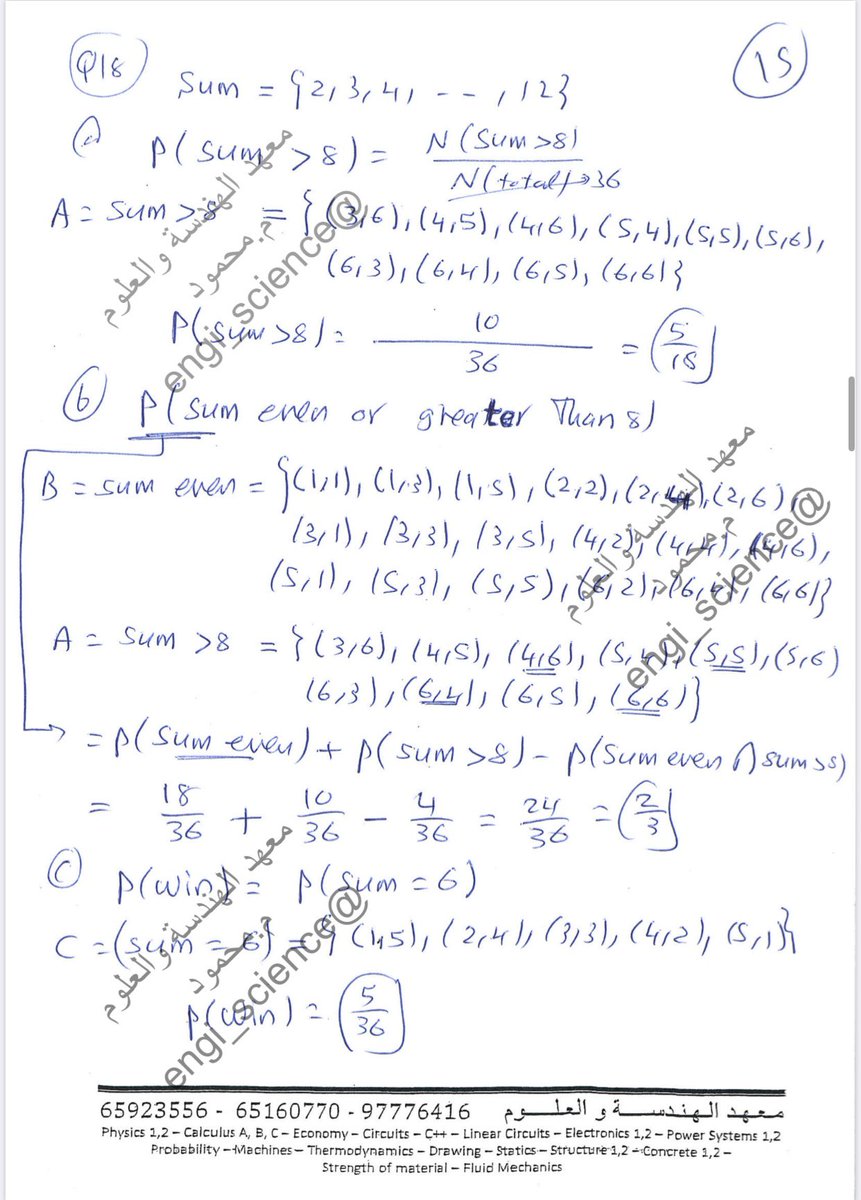 Q18
15
Sum = {2,3,4, -- ,12}
a
P(sum >8) = N(sum>8) / N(total)→36
A = sum>8 = {(3,6),(4,5),(4,6),(5,4),(5,5),(5,6),
(6,3),(6,4),(6,5),(6,6)}
P(sum>8) = 10/36 = 5/18
b P(sum even or greater Than 8)
B = sum even = {(1,1),(1,3),(1,5),(2,2),(2,4),(2,6),
(3,1),(3,3),(3,5),(4,2),(4,4),(4,6),
(5,1),(5,3),(5,5),(6,2),(6,4),(6,6)}
A = sum >8 = {(3,6),(4,5),(4,6),(5,4),(5,5),(5,6)
(6,3),(6,4),(6,5),(6,6)}
= P(sum even) + P(sum >8) - P(sum even ∩ sum>8)
= 18/36 + 10/36 - 4/36 = 24/36 = 2/3
C P(win) = P(sum = 6)
C = (sum = 6) = {(1,5),(2,4),(3,3),(4,2),(5,1)}
P(win) = 5/36
معهد الهندسة والعلوم
م.محمود
engi_science@
معهد الهندسة والعلوم
م.محمود
engi_science@
معهد الهندسة والعلوم
م.محمود
engi_science@
65923556 - 65160770 - 97776416 معهد الهندسة و العلوم
Physics 1,2 – Calculus A, B, C – Economy – Circuits – C++ – Linear Circuits – Electronics 1,2 – Power Systems 1,2
Probability – Machines – Thermodynamics – Drawing – Statics – Structure 1,2 – Concrete 1,2 –
Strength of material – Fluid Mechanics